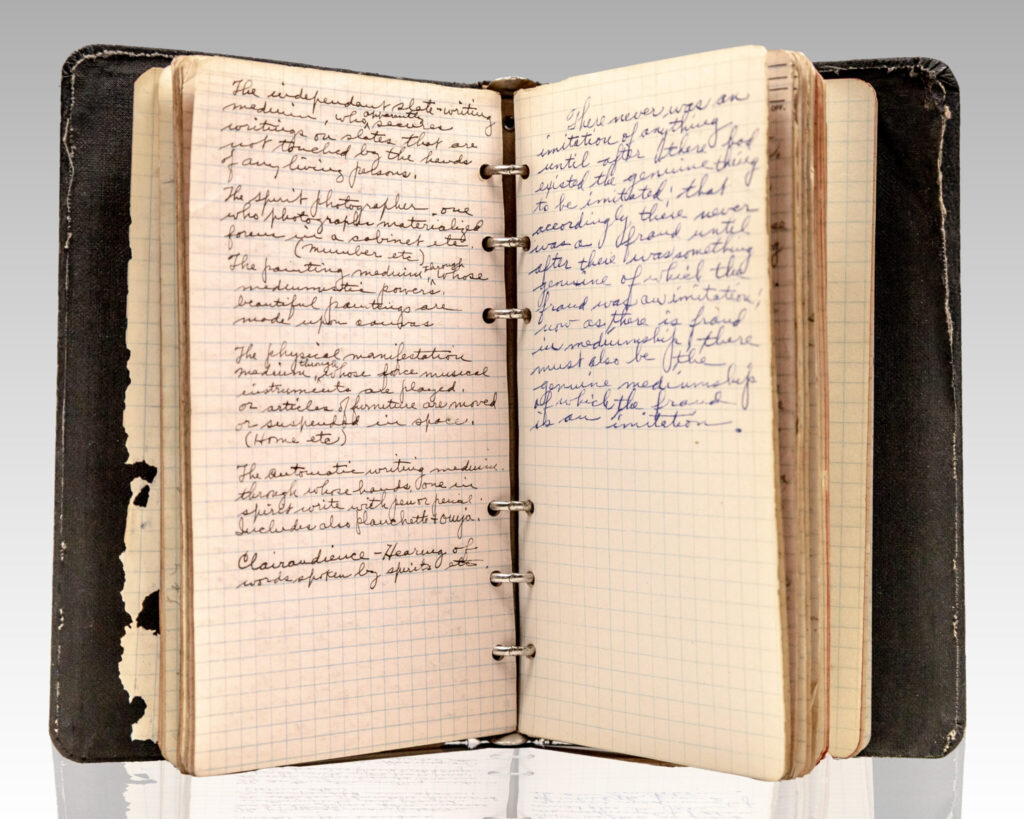 The independant slate-writing
medium, who apparently secures
writings on slates that are
not touched by the hands
of any living persons.
The spirit photographer - one
who photographs materialized
forms in a cabinet etc.
(Mumler etc)
The painting medium, through whose
mediumistic powers,
beautiful paintings are
made upon canvas
The physical manifestation
medium, through whose force musical
instruments are played.
or articles of furniture are moved
or suspended in space.
(Home etc)
The automatic writing medium.
through whose hands, one in
spirit write with pen or pencil.
Includes also planchette & Ouija.
Clairaudience - Hearing of
words spoken by spirits etc.
There never was an
imitation of anything
until after there had
existed the genuine thing
to be imitated; that
accordingly there never
was a fraud until
after there was something
genuine of which the
fraud was an imitation;
now as there is fraud
in mediumship, there
must also be the
genuine mediumship
of which the fraud
is an imitation.